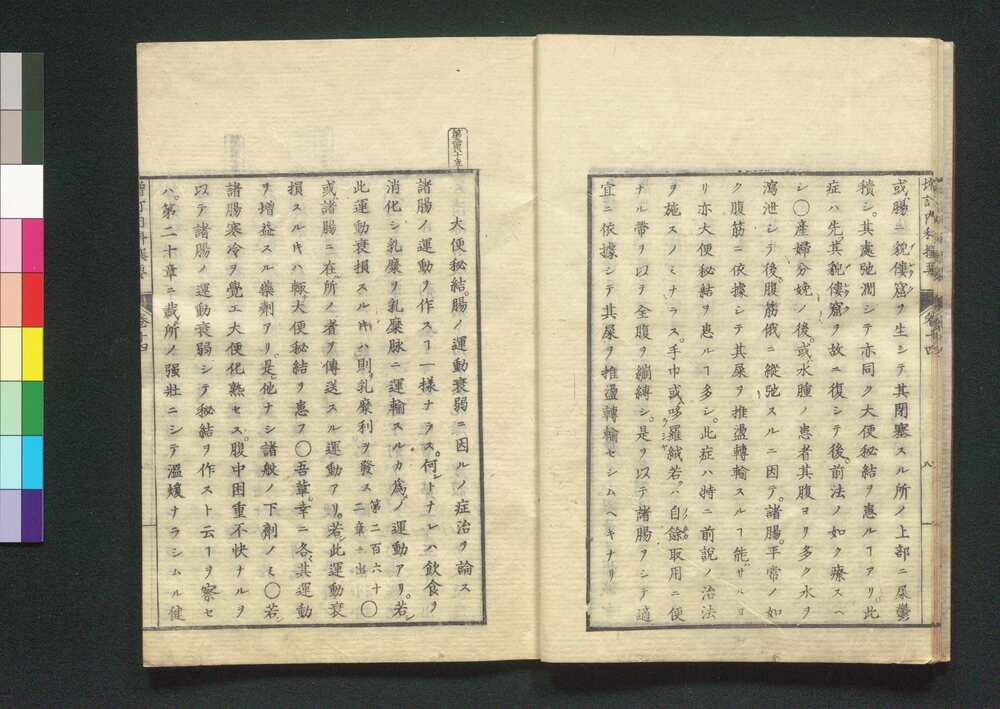 増訂内科撰要
或ハ腸ニ貌僂窟ヲ生シテ其閉塞スル所ノ上部ニ屎鬱
積シ。其處弛潤シテ亦同ク大便秘結ヲ患ルヿアリ。此
症ハ先ツ其貌僂窟ヲ故ニ復シテ後。前法ノ如ク療スヘ
シ〇産婦分娩ノ後。或ハ水腫ノ患者其腹ヨリ多ク水ヲ
瀉泄シテ後。腹筋俄ニ縱弛スルニ因テ。諸腸。平常ノ如
ク腹筋ニ依據シテ其屎ヲ推盪轉輸スルヿ能ハサルヨ
リ亦大便秘結ヲ患ルヿ多シ。此症ハ特ニ前説ノ治法
ヲ施スノミナラス。手巾或ハ哆羅絨若クハ自餘取用ニ便
ナル帶ヲ以テ全腹ヲ繃縛シ。是ヲ以テ諸腸ヲシテ適
宜ニ依據シテ其屎ヲ推盪轉輸セシムヘキナリ
大便秘結。腸ノ運動衰弱ニ因ルノ症治ヲ論ス
諸腸ノ運動ヲ作スヿ一樣ナラス。何トナレハ飲食ヲ
消化シ乳糜ヲ乳糜脉ニ運輸スルカ爲ノ運動アリ。若シ
此運動衰損スルキハ則乳糜利ヲ發ス 第二百六十二章ニ出 〇
或ハ諸腸ニ在所ノ者ヲ傳送スル運動アリ。若シ此運動衰
損スルキハ輒大便秘結ヲ患フ〇吾輩。幸ニ各其運動
ヲ増益スル藥劑アリ。是他ナシ諸般ノ下劑ノミ〇若シ
諸腸寒冷ヲ覺エ大便化熟セス。腹中困重不快ナルヲ
以テ諸腸ノ運動衰弱シテ秘結ヲ作スト云ヿヲ察セ
ハ。第二十章ニ載所ノ强壯ニシテ溫煖ナラシムル健